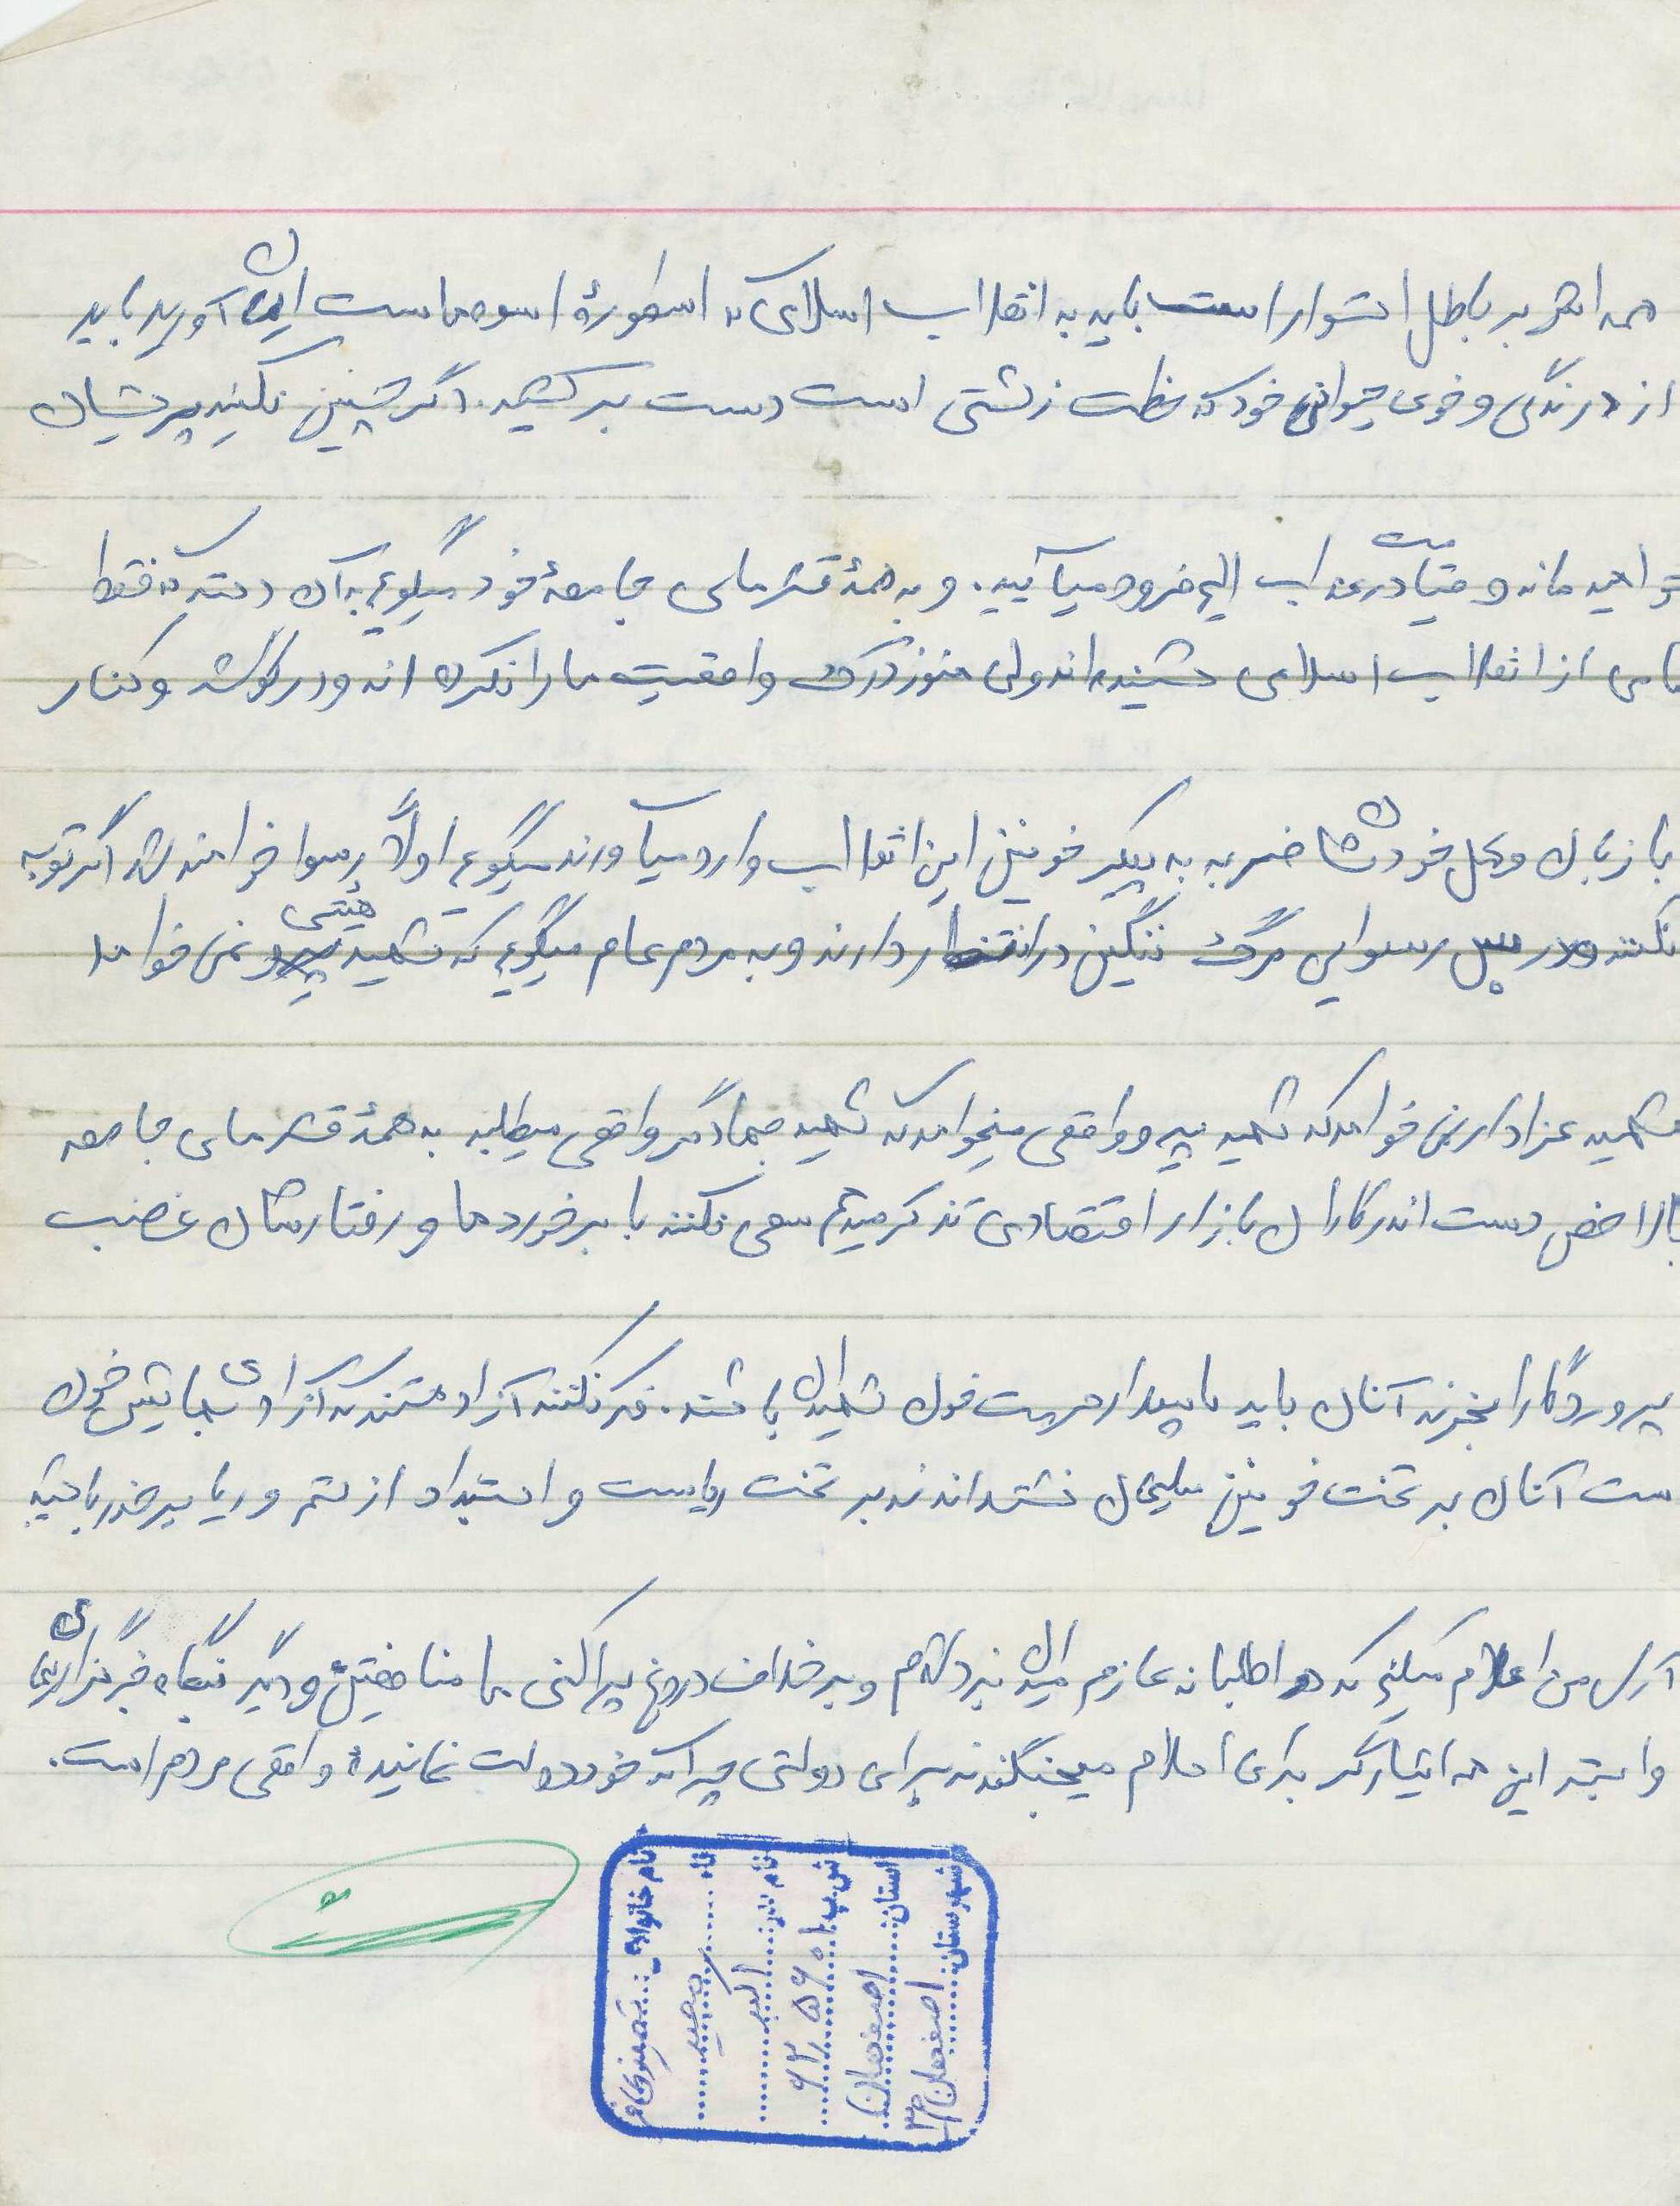 همه اش بر باطل استوار است باید به انقلاب اسلامی که اسطورهٔ اسوه ماست ایمان آورید باید
از درندگی و خوی حیوانی خود که خصلت زشتی است دست بر کشید. اگر چنین نکنید پریشان
خواهید ماند و قیامت در عذاب الهی فرود میآئید. و به همهٔ قشرهای جامعهٔ خود میگویم به آن دسته که فقط
نامی از انقلاب اسلامی شنیده اند ولی هنوز درک واقعیت ما را نکرده اند و در گوشه و کنار
با زبان و عمل خودشان ضربه به پیکر خونین این انقلاب وارد میآورند میگویم اولاً رسوا خواهند شد اگر توبه
نکنند و در پس رسوایی مرگ ننگین در انتظار دارند و به مردم عام میگویم که شهید نمی خواهد
شهید عزادار نمی خواهد که شهید پیرو واقعی میخواهد که شهید جهادگر واقعی میطلبد به همهٔ قشرهای جامعه
بالاخص دست اندرکاران بازار اقتصادی تذکر میدهم سعی نکنند با برخوردها و رفتارشان غضب
پروردگار را بخرند آنان باید پاسدار حرمت خون شهیدان باشند. فکر نکنند آزاد هستند که آزادی بهایش خون
ست آنان بر تخت خونین نشسته اند نه بر تخت ریاست و استبداد از ستم و ریا بر حذر باشید
آری من اعلام میکنم که داوطلبانه عازم میدان نبرد شده ام و بر خلاف دروغ پراکنی ها منافقین و دیگر خبرگزاریهای
وابسته این همه ایثارگر برای اسلام میجنگند نه برای دولتی چرا که خود دولت نمایندهٔ واقعی مردم است.
نام خانوادگی
نام مجید
نام پدر اکبر
ش پ ۶۲۰۵۶۰۱
استان اصفهان
شهرستان اصفهان